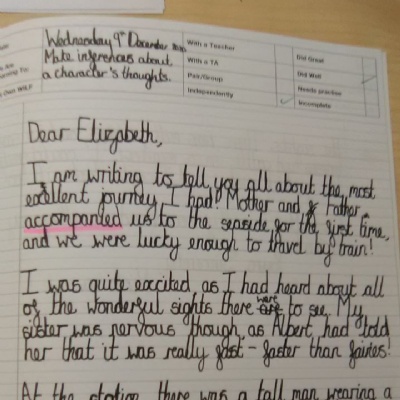 Wednesday 9th December
Make inferences about
a character's thoughts.
With a Teacher
With a TA
Pair/Group
Independently
Did Great
Did Well
Needs practice
Incomplete
Own WILF
Dear Elizabeth,
I am writing to tell you all about the most
excellent journey I had! Mother and Father
accompanied us to the seaside for the first time,
and we were lucky enough to travel by train!
I was quite excited, as I had heard about all
of the wonderful sights there were to see. My
sister was nervous though, as Albert had told
her that it was really fast - faster than fairies!
At the station, there was a tall man wearing a